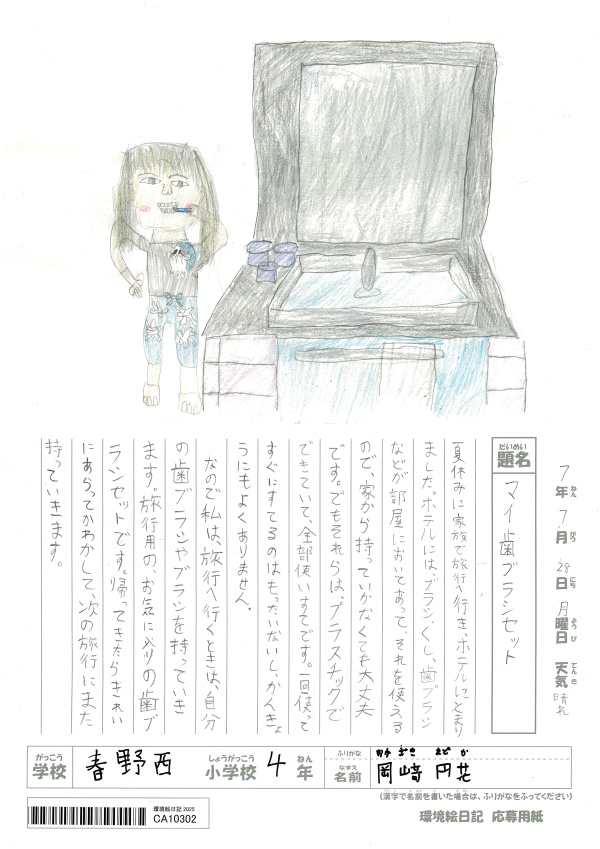 7年 7月 28日 月曜日 天気 晴れ
ねん がつ にち ようび てんき
だいめい
題名 マイ歯ブラシセット
夏休みに家族で旅行へ行き、ホテルにとまり
ました。ホテルにはブラシ、くし、歯ブラシ
などが部屋においてあって、それを使える
ので、家から持っていかなくても大丈夫
です。でもそれらは、プラスチックで
できていて、全部使いすてです。一回使って
すぐにすてるのはもったいないし、かんきょ
うにもよくありません。
なので私は、旅行へ行くときは、自分
の歯ブラシやブラシを持っていき
ます。旅行用の、お気に入りの歯ブ
ラシセットです。帰ってきたらきれい
にあらってかわかして、次の旅行にまた
持っていきます。
がっこう しょうがっこう ねん ふりがな おかざき まどか
学校 春野西 小学校 4年 なまえ 名前 岡﨑 円花
(漢字で名前を書いた場合は、ふりがなをふってください)
環境絵日記 2025
CA10302
環境絵日記 応募用紙